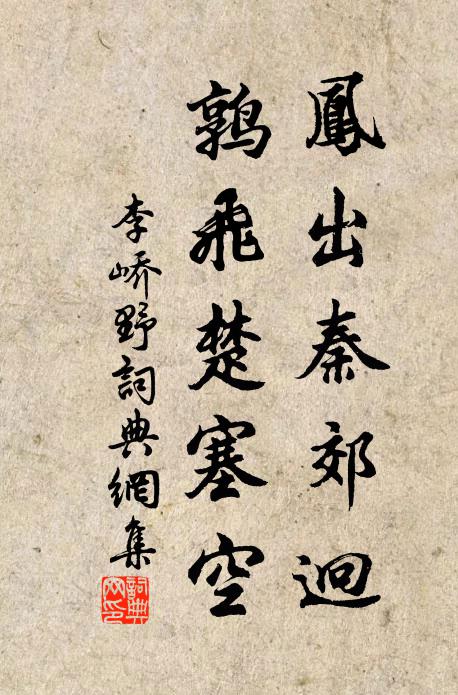 鳳出秦郊迥
鶉飛楚塞空
李嶠野詞典網集
詞典网印